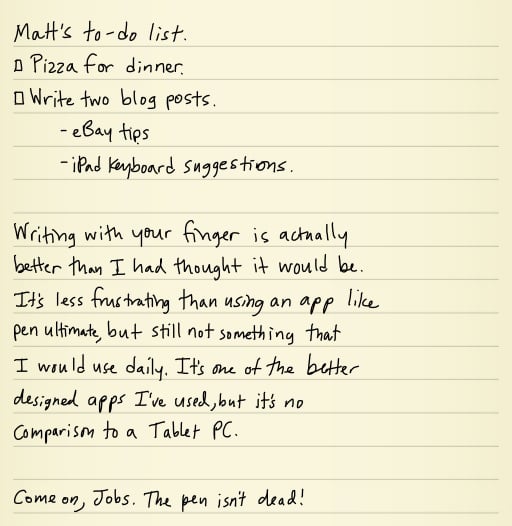 Matt's to-do list.
☐ Pizza for dinner.
☐ Write two blog posts.
- eBay tips
- iPad keyboard suggestions.
Writing with your finger is actually
better than I had thought it would be.
It's less frustrating than using an app like
pen ultimate, but still not something that
I would use daily. It's one of the better
designed apps I've used, but it's no
comparison to a Tablet PC.
Come on, Jobs. The pen isn't dead!